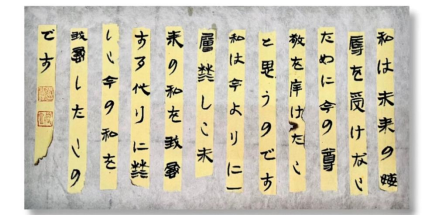 私は未来の侮
辱を受けない
ために今の尊
敬を斥けたい
と思うのです
私は今よりに一
層淋しい未
来の私を我慢
する代りに淋
しい今の私を
我慢したいの
です